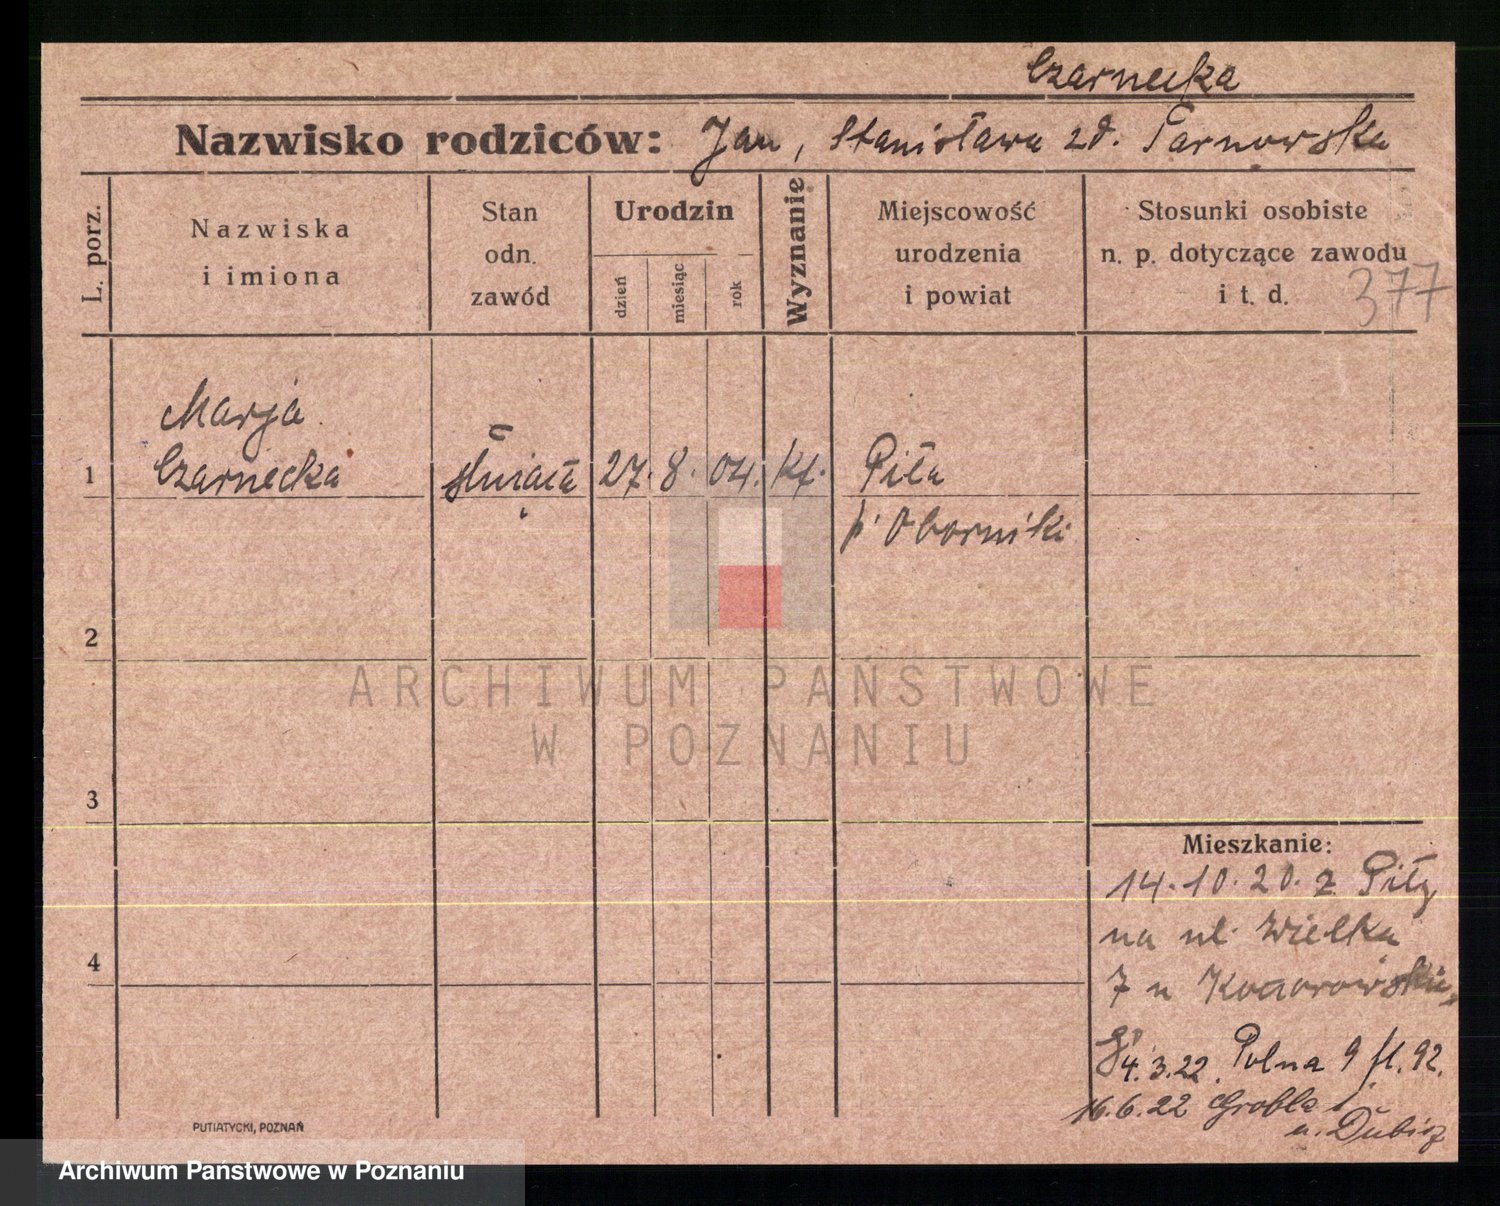 Czarnecka
Nazwisko rodziców: Jan, Stanisława zd. Tarnowska
L. porz.
Nazwiska
i imiona
Stan
odn.
zawód
Urodzin
dzień
miesiąc
rok
Wyznanie
Miejscowość
urodzenia
i powiat
Stosunki osobiste
n. p. dotyczące zawodu
i t. d.
377
Marja
1 Czarnecka 27. 8. 04. kt. Piła
p. Oborniki
2
3
4
ARCHIWUM PAŃSTWOWE
W POZNANIU
Mieszkanie:
14.10.20. z Piły
na ul. Wielka
7 u
4.3.22. Polna 9 fl. 92.
16.6.22 Grobla 1
u.
PUTIATYCKI, POZNAŃ
Archiwum Państwowe w Poznaniu